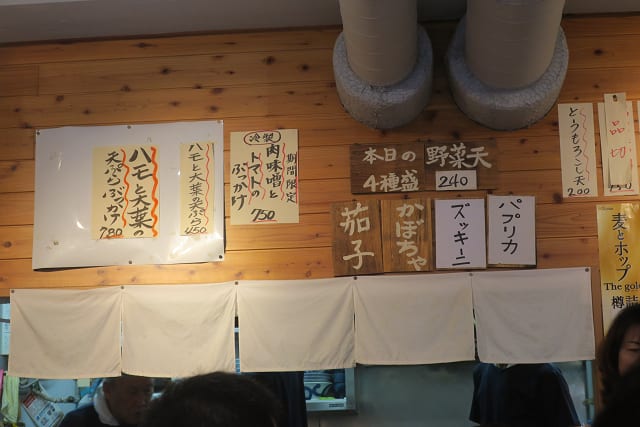 ハモと大葉の
天ぷらぶっかけ
780
ハモと大葉の天ぷら
450
期間限定
冷製
肉味噌と
トマトの
ぶっかけ
750
本日の
4種盛
野菜天
240
茄子
かぼちゃ
ズッキーニ
パプリカ
とうもろこし天
200
品切
麦とホップ
The gol
樽詰